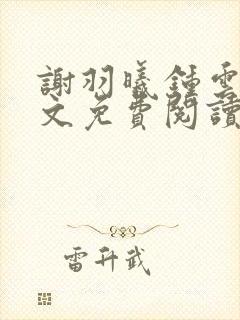 謝羽曦鍾雲
文免費閱讀
雷升武